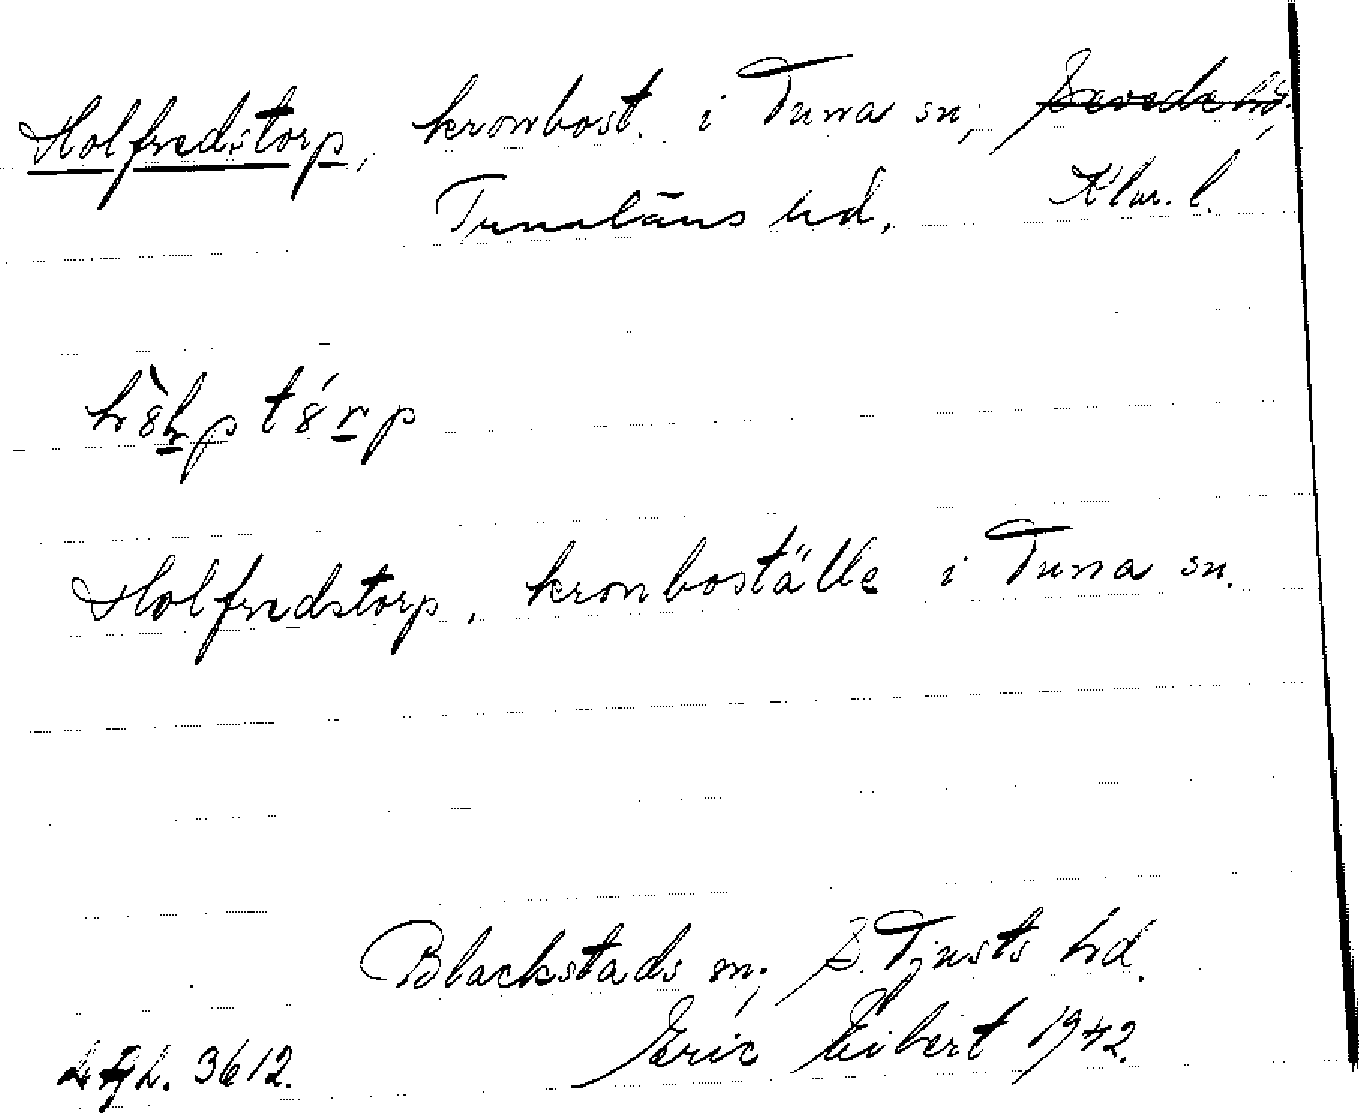 Holfredstorp, kronbost. i Tuna sn, ~~Sevede hd,~~
Tunaläns hd, Klm. l.
Holfredstorp, kronboställe i Tuna sn.
Blackstads sn, S. Tjusts hd.
Eric Eibert 1942.
3612.